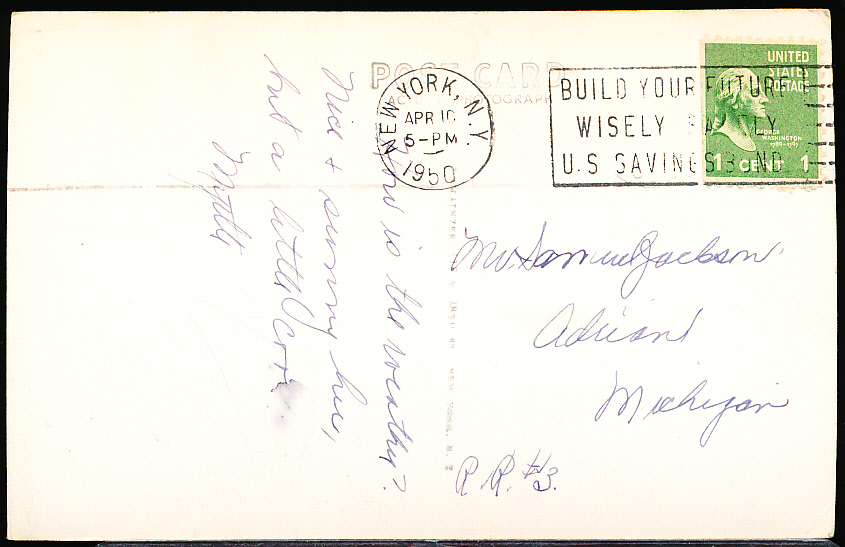 POST CARD
NEW YORK, N.Y.
APR 10
5-PM
1950
BUILD YOUR FUTURE
WISELY SAFELY
U.S SAVINGS BOND
UNITED
STATES
POSTAGE
GEORGE
WASHINGTON
1789-1797
1 CENT 1
How is the weather?
Nice & sunny here,
but a little cool.
Mr. Samuel Jackson
Adrian
Michigan
R.R. #3.